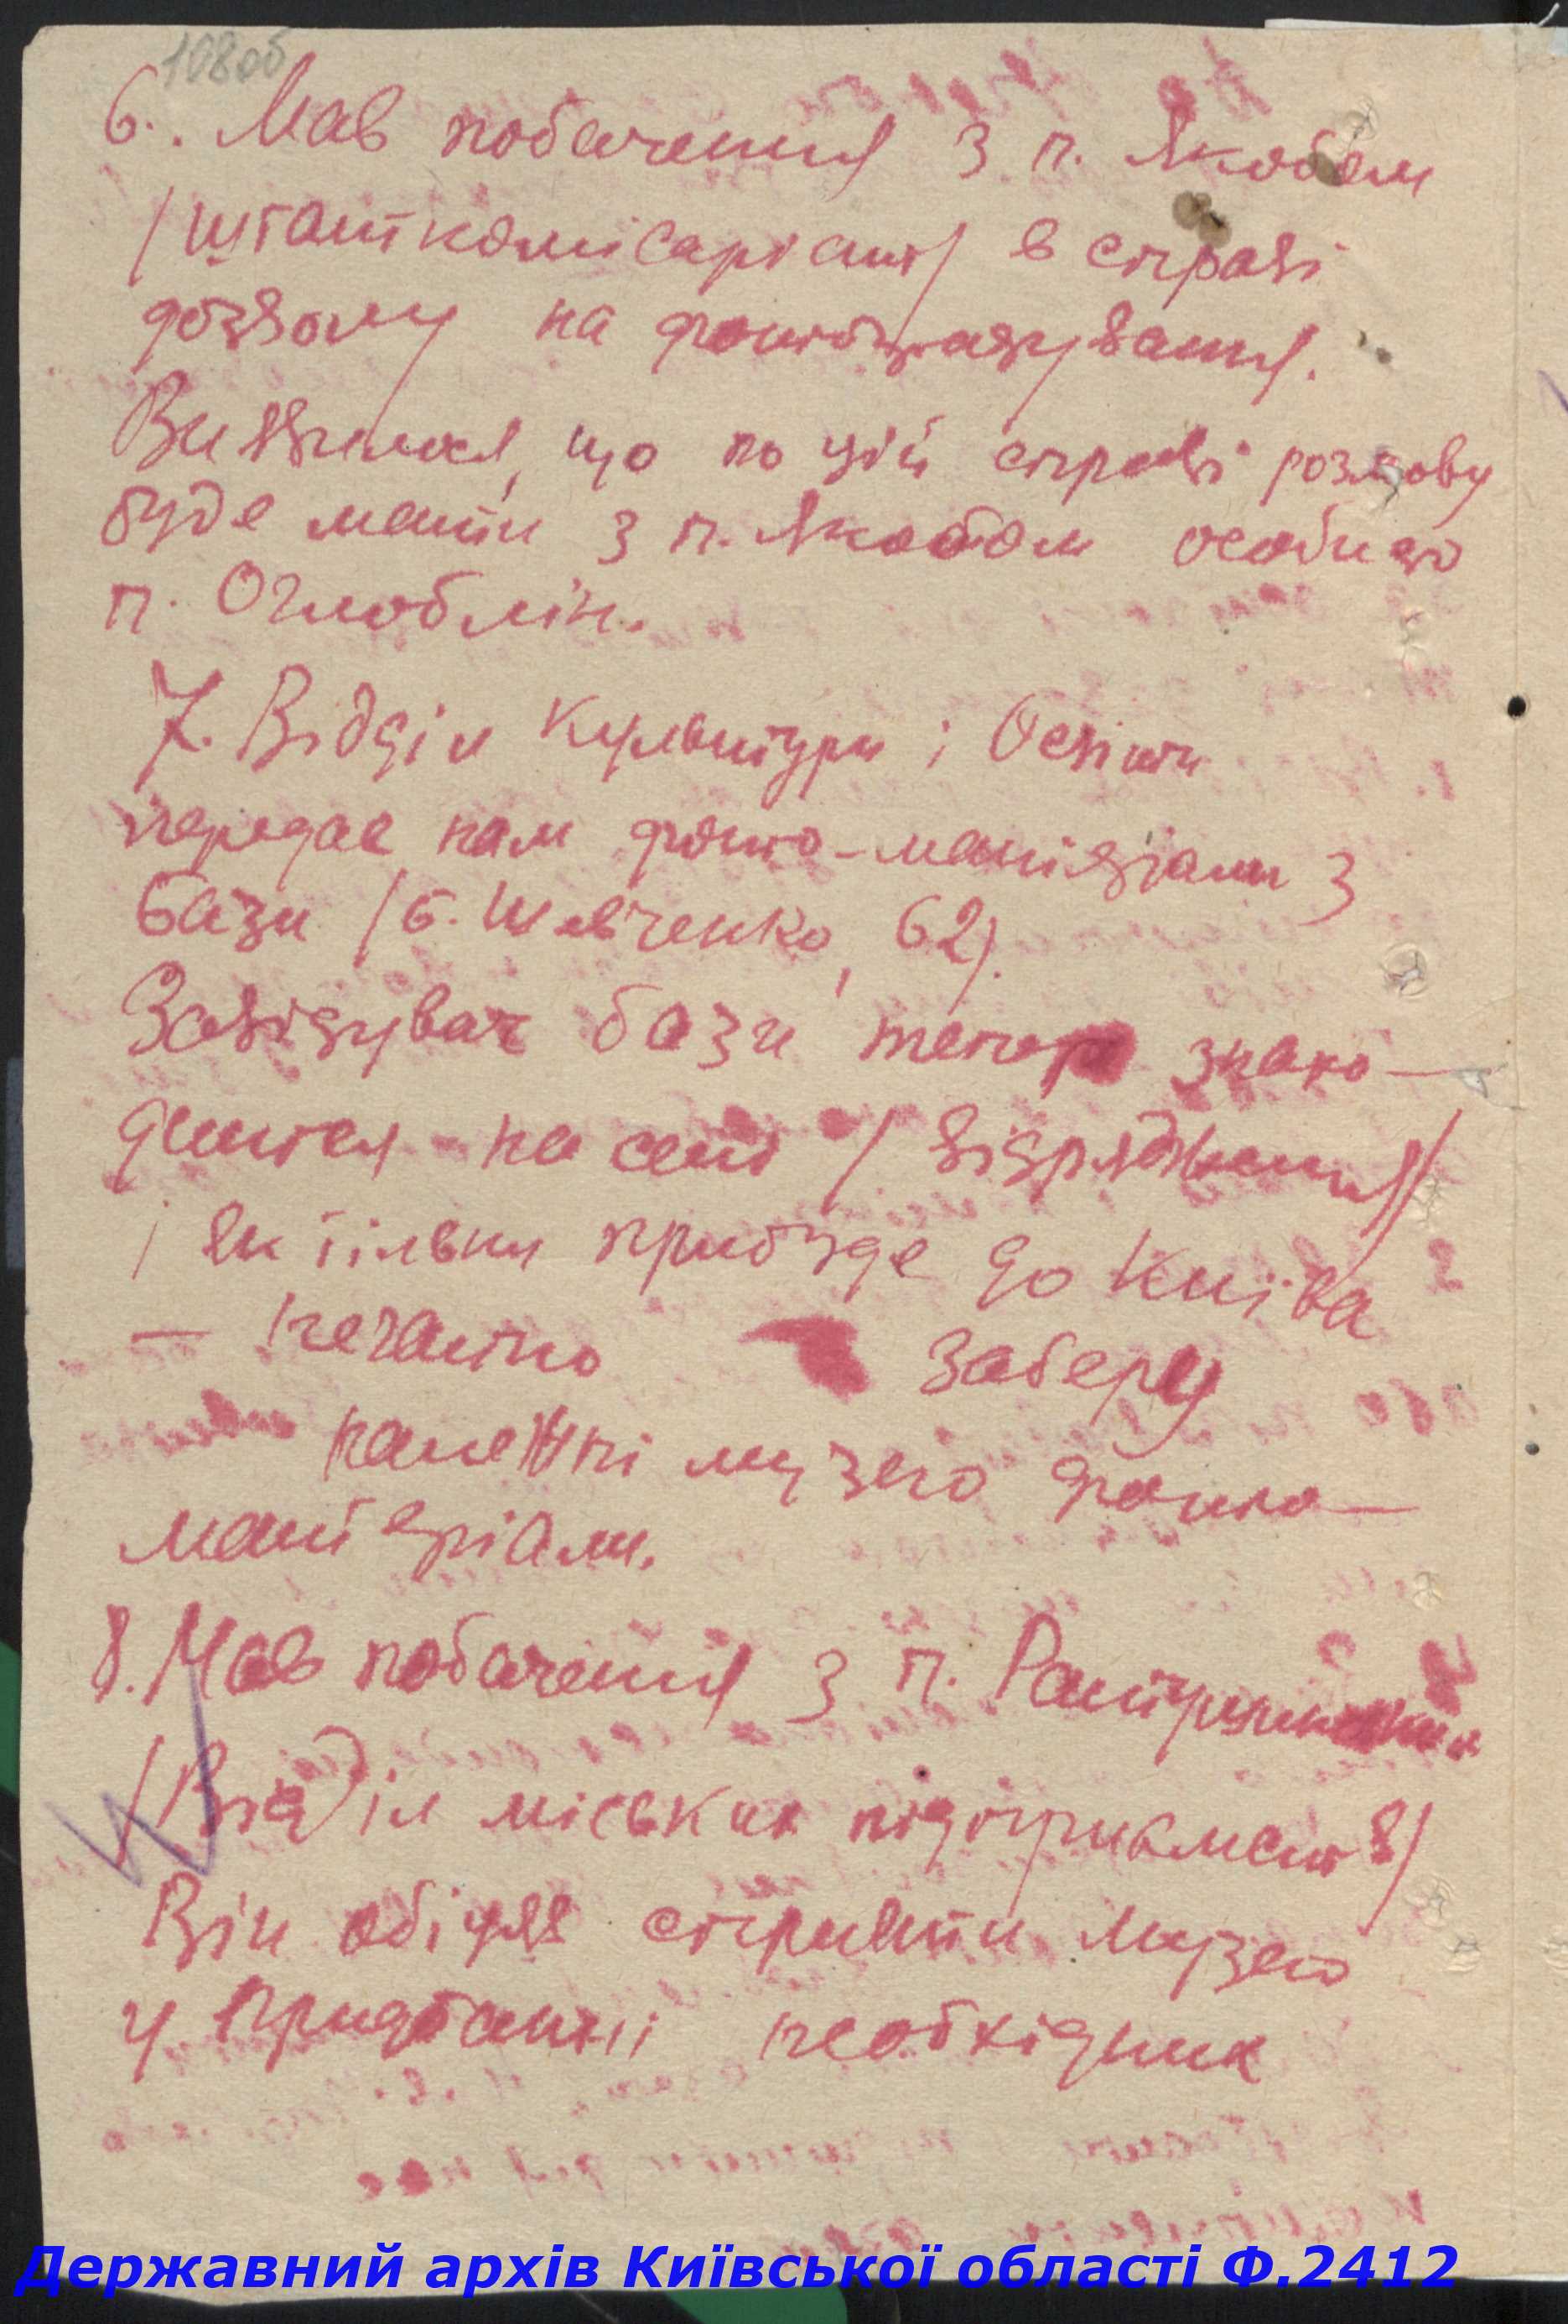 108об
6. Мав побачення з п. Якобом
/штаткомісаріат/ в справі
дозволу на фотографування.
Виявилося, що по цій справі розмову
буде мати з п. Якобом особисто
п. Оглоблін.
7. Відділ Культури і Освіти
передає нам фото-матеріали з
бази /б. Шевченко, 62).
Завідувач бази тепер знахо-
диться на селі /відрядження/
і як тільки приїде до Київа
— негайно заберу
належні музею фото-
матеріали.
8. Мав побачення з п.
/Відділ міських підприємств/
Він обіцяв сприяти музею
у придбанні необхідних
Державний архів Київської області Ф.2412